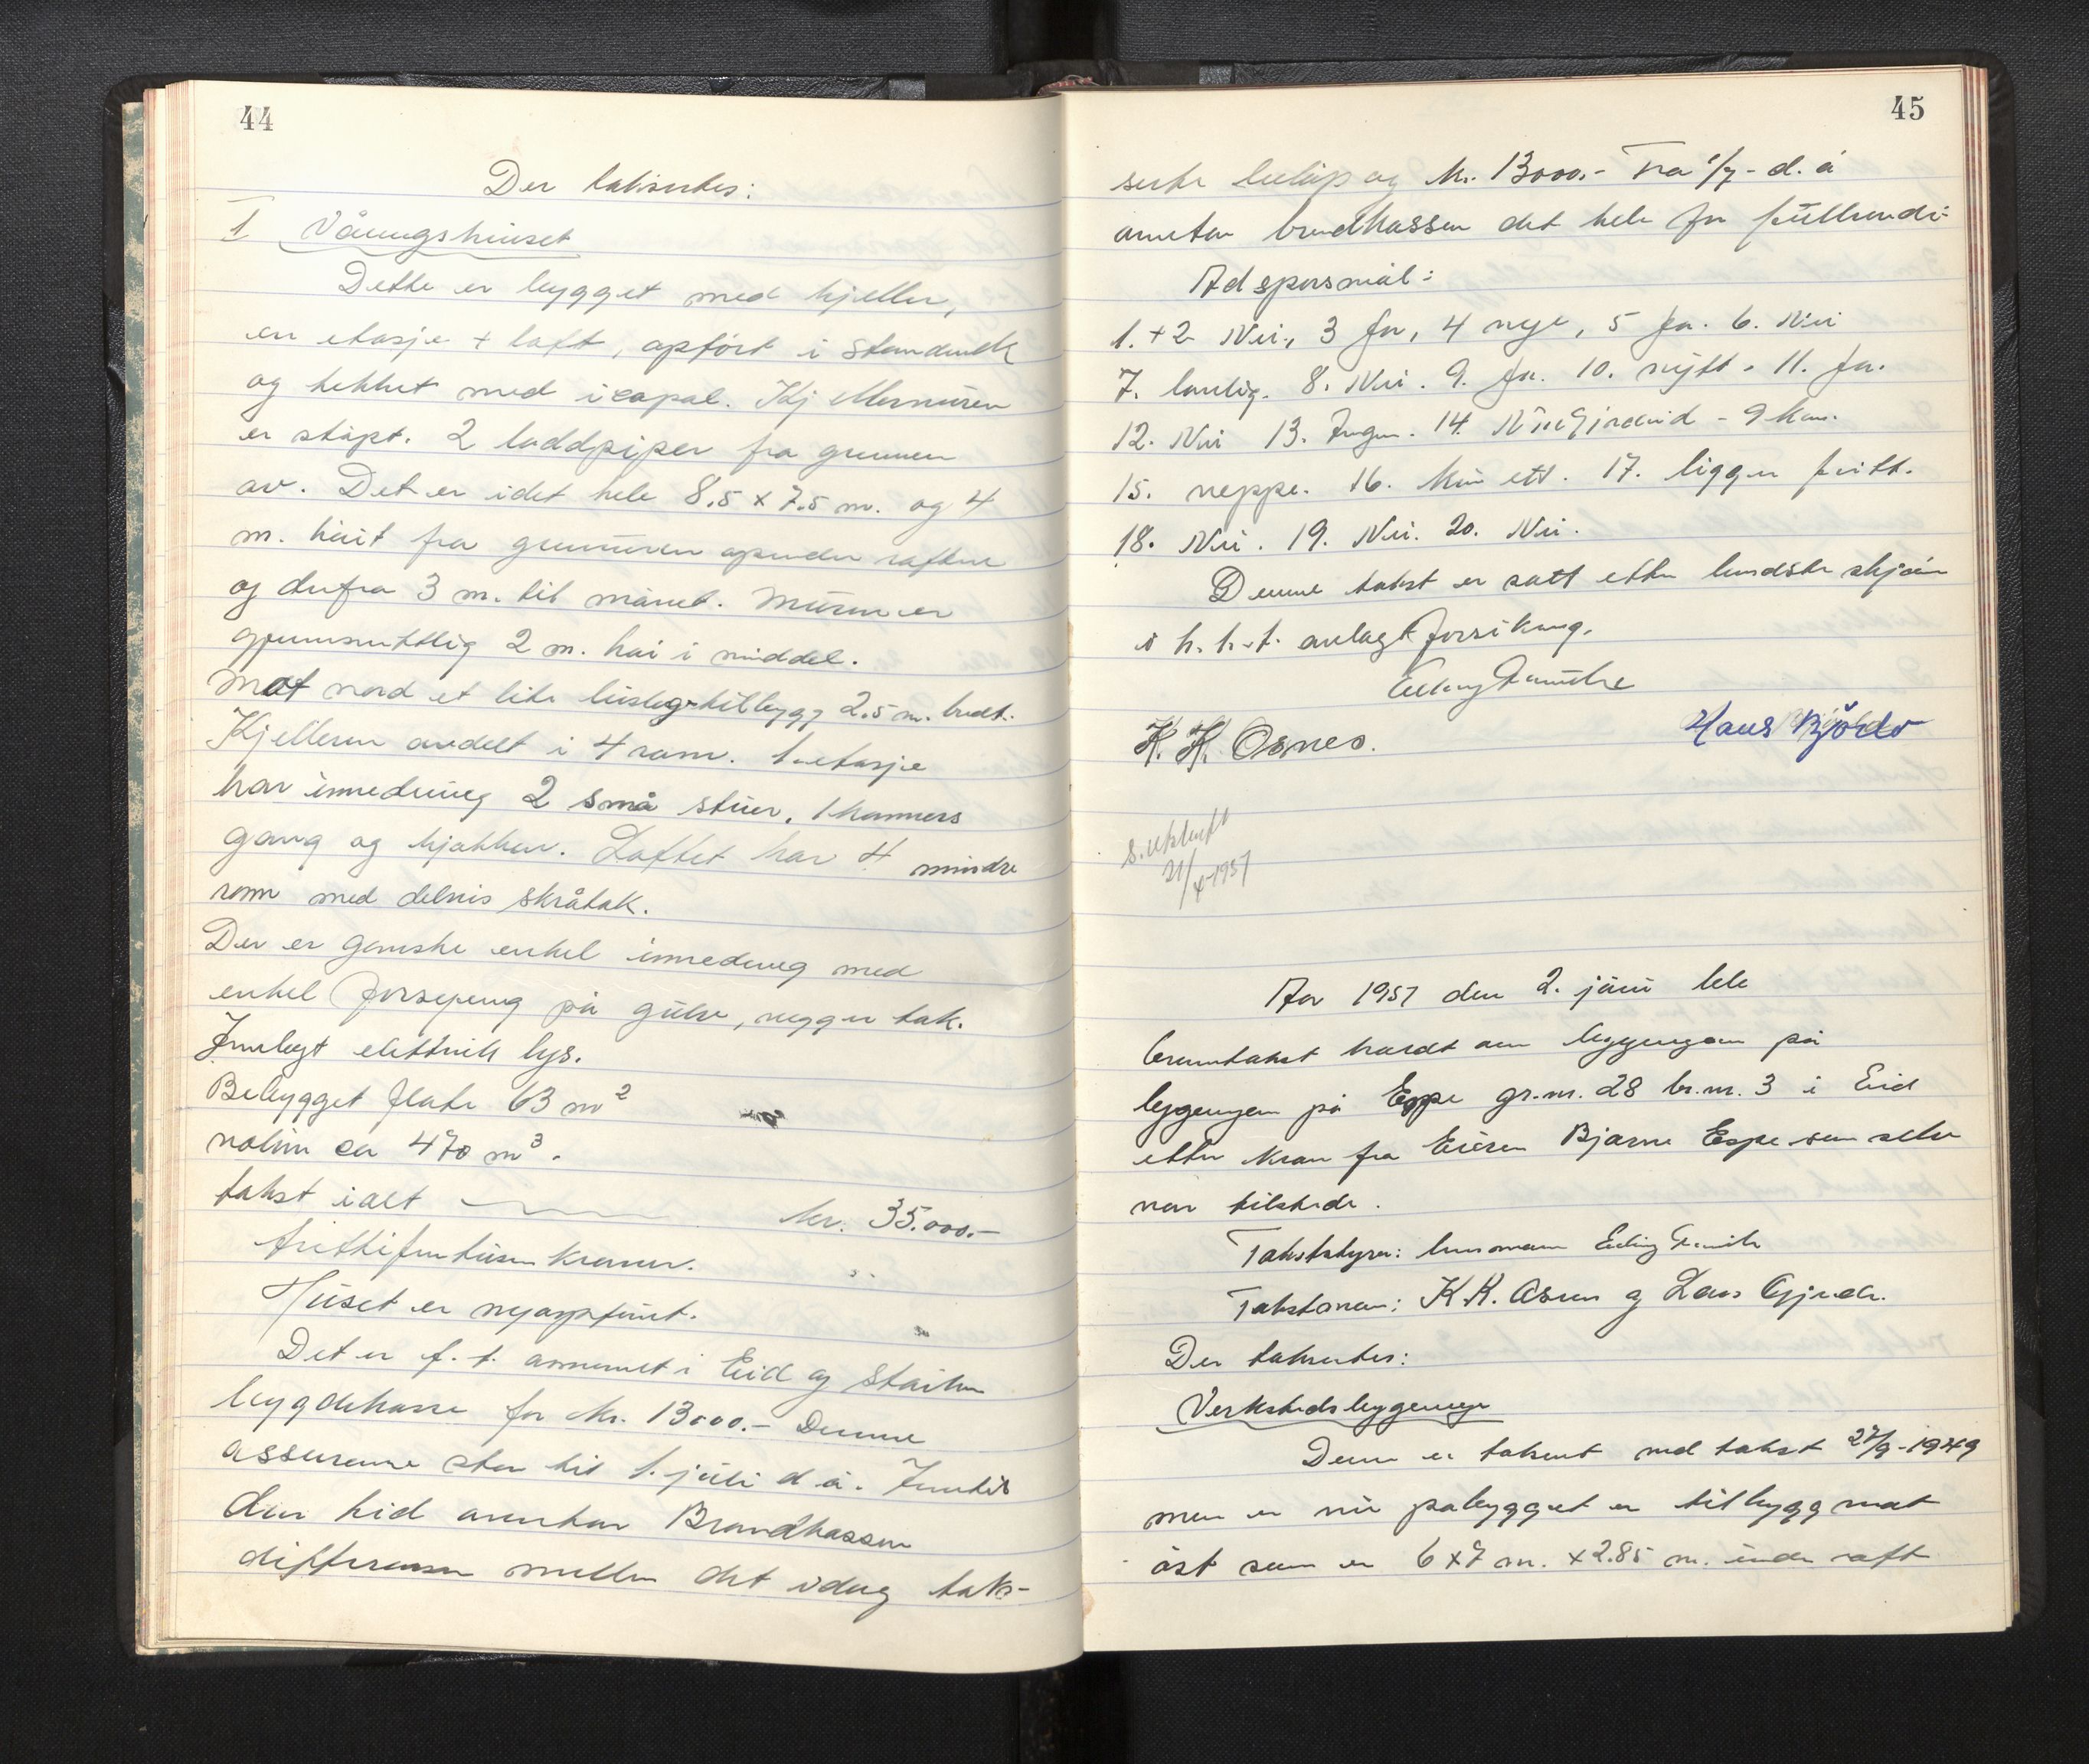 44
Der takseertes:
I Våningshuset
Dette er bygget med kjeller,
en etasje + loft, opført i standverk
og tekket med icopal. Kjellermuren
er støpt. 2 loddpiper fra grunnen
av. Det er idet hele 8,5 x 7.5 m. og 4
m. høit fra grunmuren og under raften
og derfra 3 m. til mønet. Muren er
gjennemsnittlig 2 m. høi i middel.
Mot nord et lite bislag-tilbygg 2,5 m. bredt.
Kjelleren avdelt i 4 rom. 1. etasje
har innredning 2 små stuer, 1 kammers
gang og kjøkken. Loftet har 4 mindre
rom med delvis skråtak.
Der er ganske enkel innredning med
enkel forseggjering på gulv, vegger tak.
Innlagt elektrisk lys.
Bebygget flate 63 m²
volum ca 470 m³.
takst ialt kr. 35.000.-
trettifemtusen kroner.
Huset er nyoppført.
Det er f. t. assurert i Eid og Stårheim
bygdekasse for kr. 13000.- Denne
assuranse står til 1. juli d å. Inntil
den tid overtar Brandkassen
differansen mellem det idag tak-
45
serte beløp og kr. 13000.- Fra 1/7 - d. å
overtar brandkassen det hele for fullverdi
Ad spørsmål:
1. + 2 Nei, 3 Ja, 4 nye, 5 Ja. 6. Nei
7. lovlig. 8. Nei. 9. Ja. 10. nytt. 11. Ja.
12. Nei 13. Ingen. 14. Nordfjordeid - 9 km.
15. neppe. 16. Kun ett. 17. ligger fritt.
18. Nei. 19. Nei. 20. Nei.
Denne takst er satt etter beste skjønn
i h. h. t. avlagt forsikring.
K. K. Osnes.
Hans Bjørlo
s. utskrift
21/5-1957
År 1957 den 2. juni ble
branntakst holdt over bygningen på
bygningen på Espe gr.nr. 28 br.nr. 3 i Eid
etter krav fra Eieren Bjarne Espe som selv
var tilstede.
Takstbestyrer: lensmann
Takstmenn: K. K. Osnes og Lars Gjerde.
Der takseertes:
Verkstedsbygninge
Denne er taksert med takst 27/9-1949
men er nu påbygget et tilbygg mot
øst som er 6 x 7 m. x 2.85 m. under raft